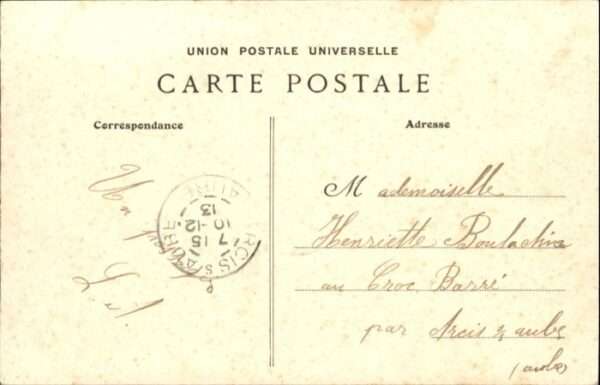 UNION POSTALE UNIVERSELLE
CARTE POSTALE
Correspondance
Adresse
Un
ARCIS S AUBE
7 15
10-12
13
AUBE
Mademoiselle
Henriette
au Croc Barré
par Arcis s aube
(aube)